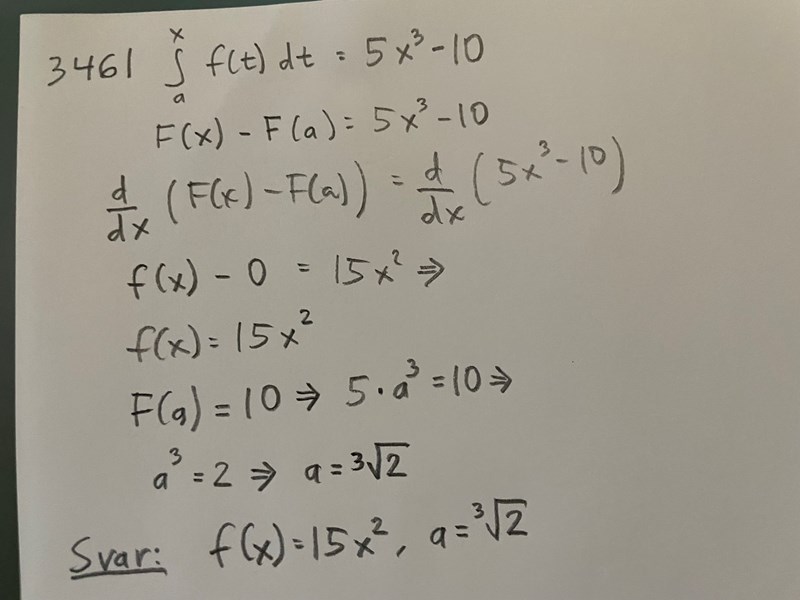 3461 ∫ₐˣ f(t) dt = 5x³ - 10
F(x) - F(a) = 5x³ - 10
d/dx (F(x) - F(a)) = d/dx (5x³ - 10)
f(x) - 0 = 15x² ⇒
f(x) = 15x²
F(a) = 10 ⇒ 5·a³ = 10 ⇒
a³ = 2 ⇒ a = ³√2
Svar: f(x) = 15x², a = ³√2